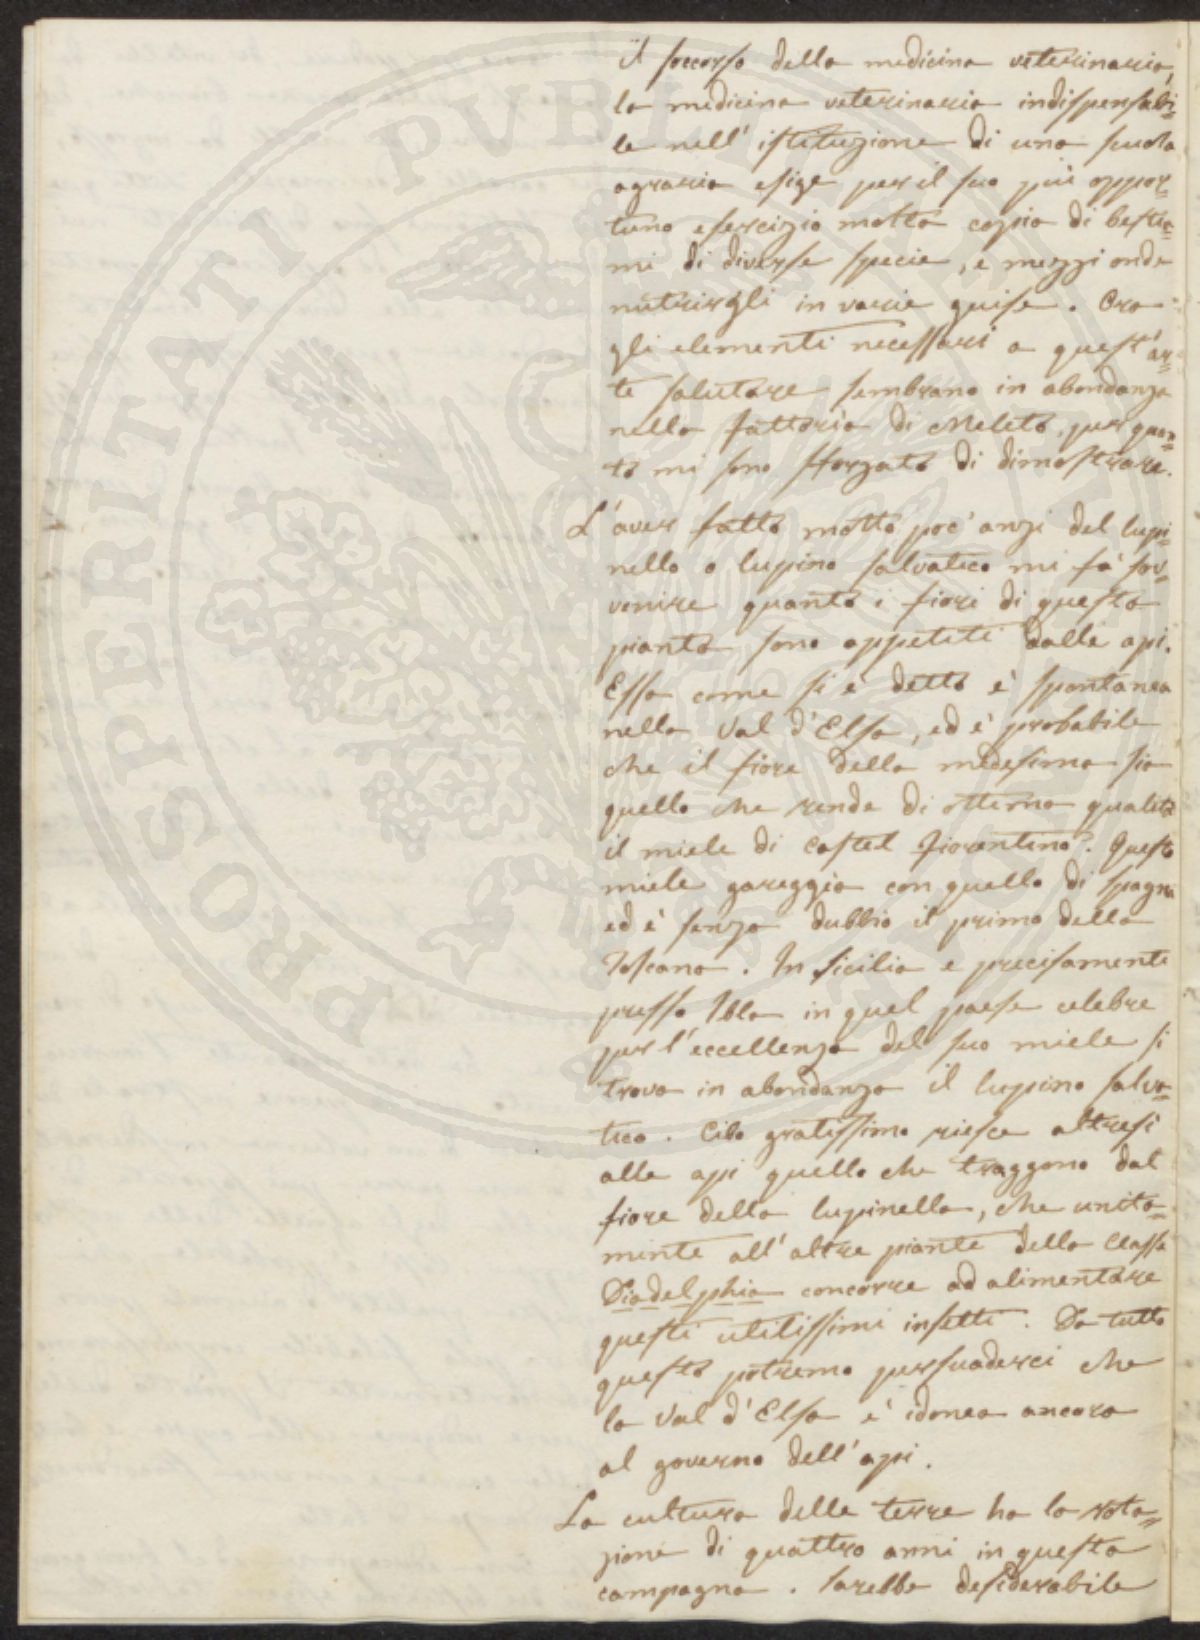 il soccorso della medicina veterinaria,
la medicina veterinaria indispensabi=
le nell' istituzione di una scuola
agraria esige per il suo più oppor=
tuno esercizio molta copia di bestia=
mi di diverse specie, e mezzi onde
nutrirgli in varie guise. Ora
gli elementi necessari a quest'ar=
te salutare sembrano in abondanza
nella fattoria di Meleto, per quan=
to mi sono sforzato di dimostrare.
L'aver fatto motto poc'anzi del lupi=
nello o lupino salvatico mi fà sov=
venire quanto i fiori di questa
pianta sono appetiti dalle api.
Essa come si è detto è spontanea
nella Val d'Elsa, ed è probabile
che il fiore della medesima sia
quello che rende di ottima qualità
il miele di Castel Fiorentino. Questo
miele gareggia con quello di Spagna
ed è senza dubbio il primo della
Toscana. In Sicilia e precisamente
presso Ibla in quel paese celebre
per l'eccellenza del suo miele si
trova in abondanza il lupino salva=
tico. Cibo gratissimo riesce altresi
alle api quello che traggono dal
fiore della lupinella, che unita=
mente all'altre piante della Classe
Diadelphia concorre ad alimentare
questi utilissimi insetti. Da tutto
questo potremo persuaderci che
la Val d'Elsa è idonea ancora
al governo dell'api.
La cultura delle terre ha la rota=
zione di quattro anni in questa
campagna. Sarebbe desiderabile
PROSPERITATI PUBLICAE